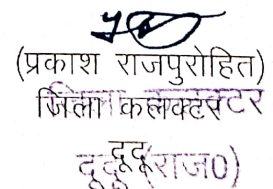 (प्रकाश राजपुरोहित)
जिला कलक्टर
दूदू
दूदू(राज0)